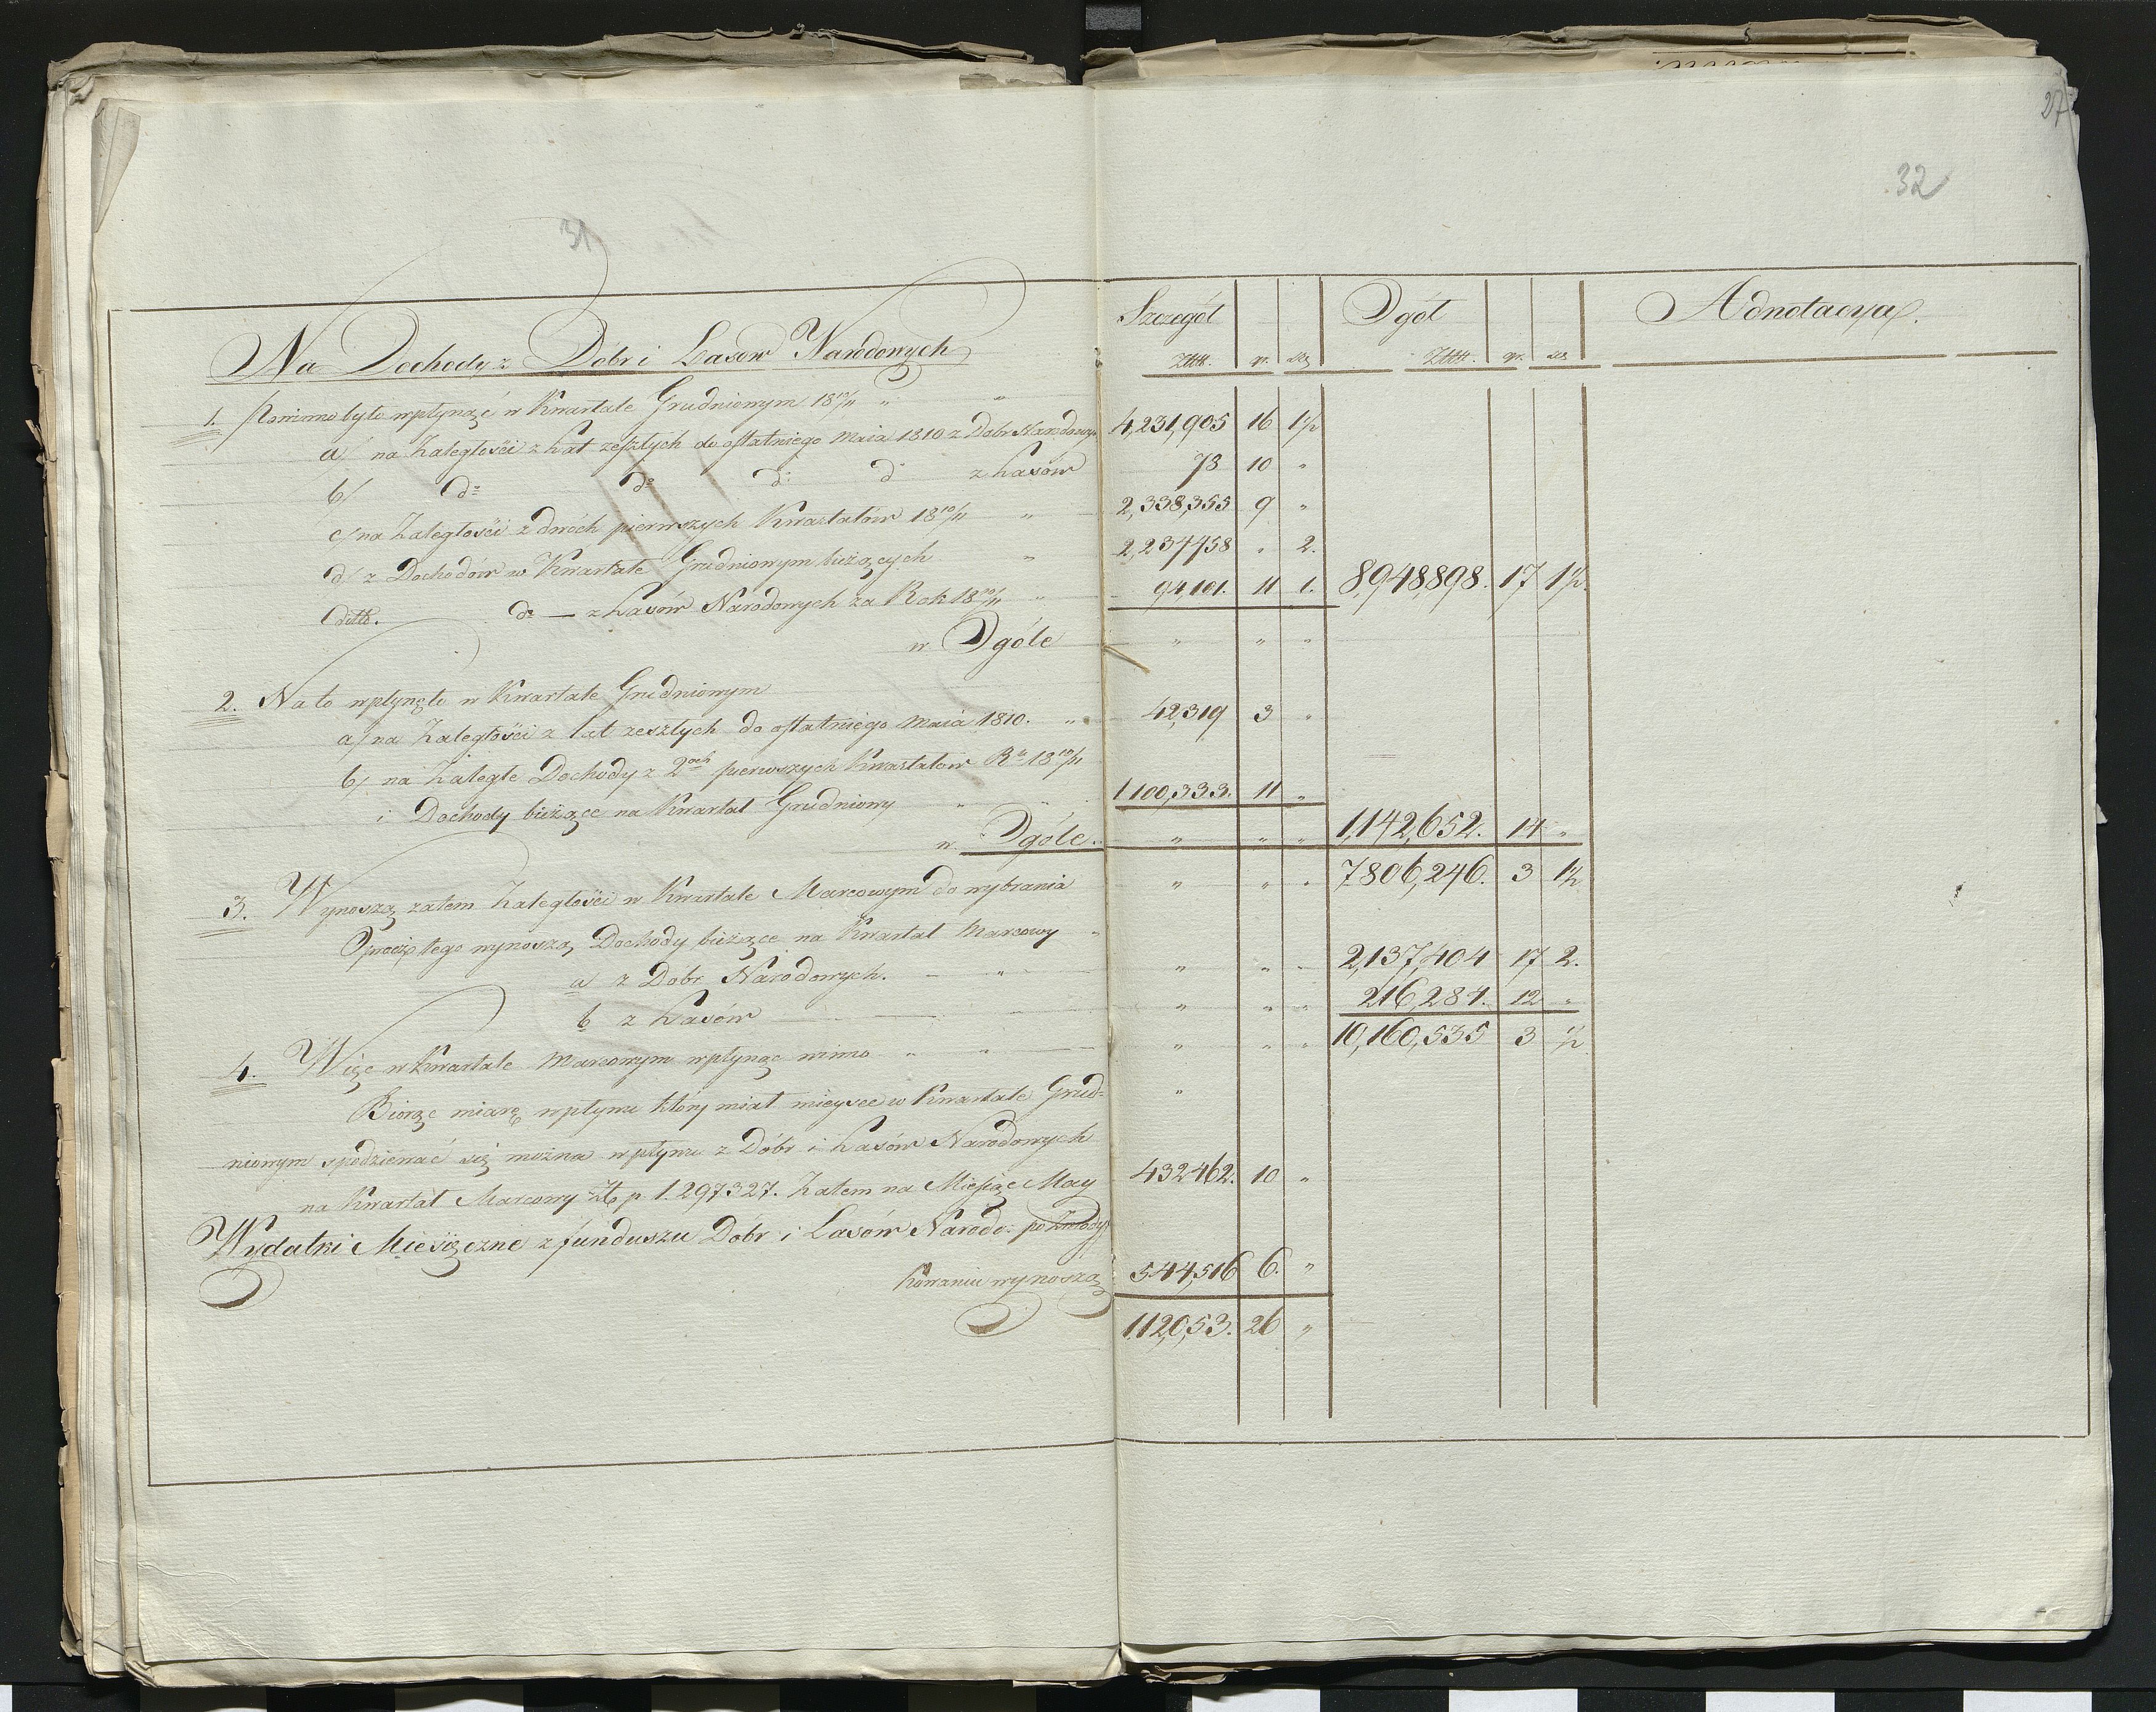 27
32
31
Na Dochody z Dobr i Lasow Narodowych
Szczegół
Ogół
Adnotacya.
Złłt. gr. sz
Złłt. gr. sz
1. Powinno było wpłynąć w Kwartale Grudniowym 18 10/11 " "
a/ na Zaległości z Lat zeszłych do ostatniego Maia 1810 z Dobr Narodowych 4,231,905 16 1½
b/ do do do do z Lasów 78 10 "
c/ na Zaległości z dwóch pierwszych Kwartałów 18 10/11 " 2,338,355 9 "
d/ z Dochodów w Kwartale Grudniowym bieżących " 2,234458 " 2.
Ditto. do — z Lasów Narodowych za Rok 18 10/11 " 94,101. 11 1. 8,948,898. 17 1½.
w Ogóle " " "
2. Na to wpłynęło w Kwartale Grudniowym
a/ na Zaległości z lat zeszłych do ostatniego Maia 1810. " 42,319 3 "
b/ na Zaległe Dochody z 2och pierwszych Kwartałów Ru 18 10/11
i Dochody bieżące na Kwartał Grudniowy " " 1100,333. 11 "
w Ogóle. " " " 1,142,652. 14 "
3. Wynoszą zatem Zaległości w Kwartale Marcowym do wybrania " " " 7806,246. 3 1½
Oprócz tego wynoszą Dochody bieżące na Kwartał Marcowy "
a z Dóbr Narodowych. — " " " " 2,137,404 17 2.
b z Lasów " " " 216,284. 12 "
4. Więc w Kwartale Marcowym wpłynąć winno " " " " " 10,160,535 3 ½
Biorąc miarę wpływu który miał mieysce w Kwartale Grud= "
niowym spodziewać się można wpływu z Dóbr i Lasów Narodowych
na Kwartał Marcowy Zł p. 1.297327. Zatem na Miesiąc May 432462. 10 "
Wydatki Miesięczne z funduszu Dóbr i Lasów Narodo:
kowaniu wynoszą 544,516 6. "
112,053. 26 "